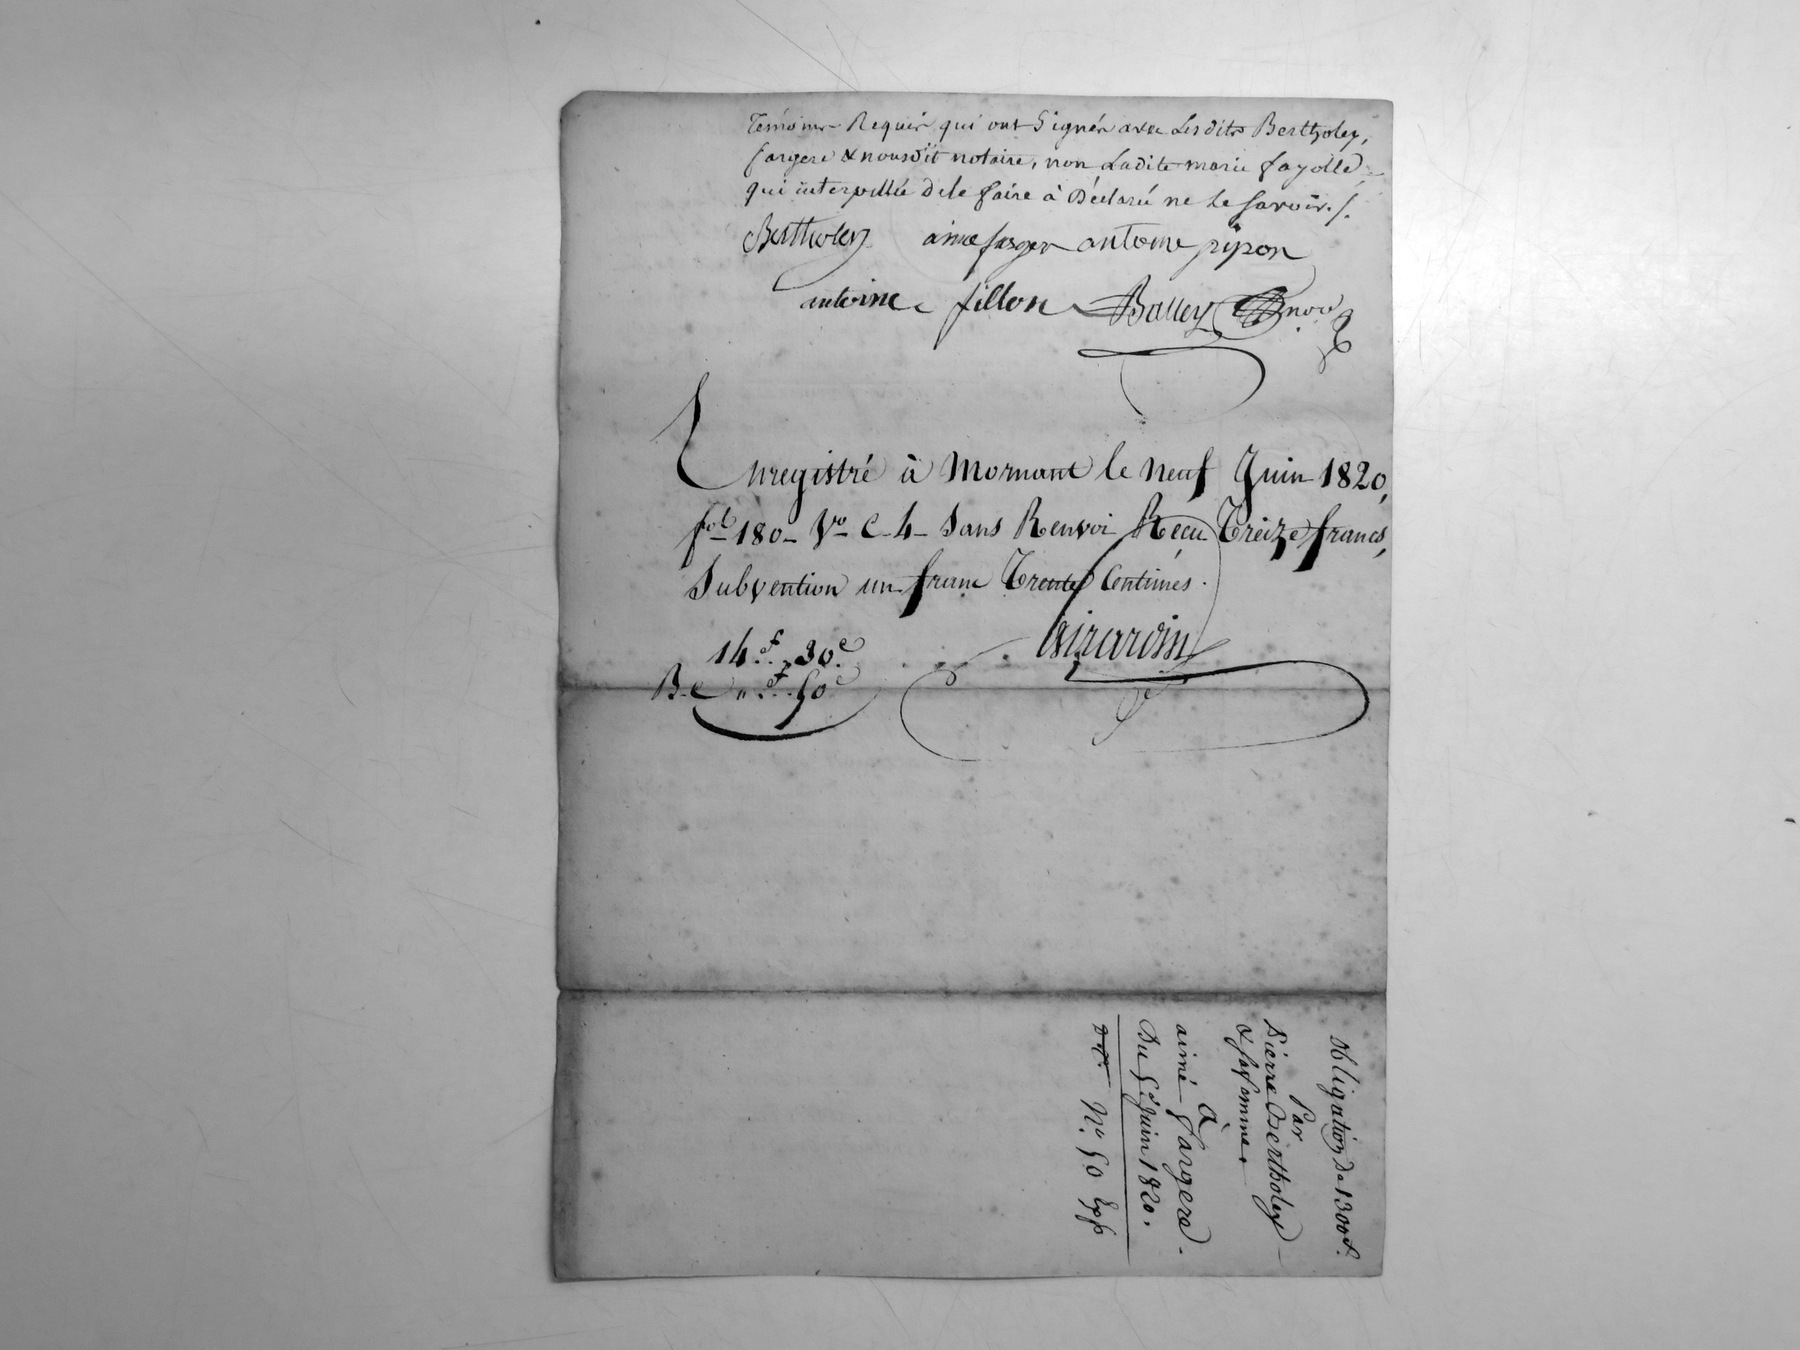 Temoins Requis qui ont Signés avec Lesdits Bertholey,
fargere & nousdit notaire, non Ladite marie fayolle,
qui interpellée dele faire à Déclaré ne le savoir./.
Bertholey aime farger antoine pipon
antoine fillon Balley nore
Enregistré à Mornant le neuf Juin 1820,
fol 180 Vo C. 4 Sans Renvoi Reçu Treize francs,
Subvention un franc Trente Centimes.
14.f 30.c
B.C " f. 50c
Girardin
Obligation De 1300f.
Par
Pierre Bertholey
& sa femme.
à
aimé fargere.
Du 5 Juin 1820.
No. 50